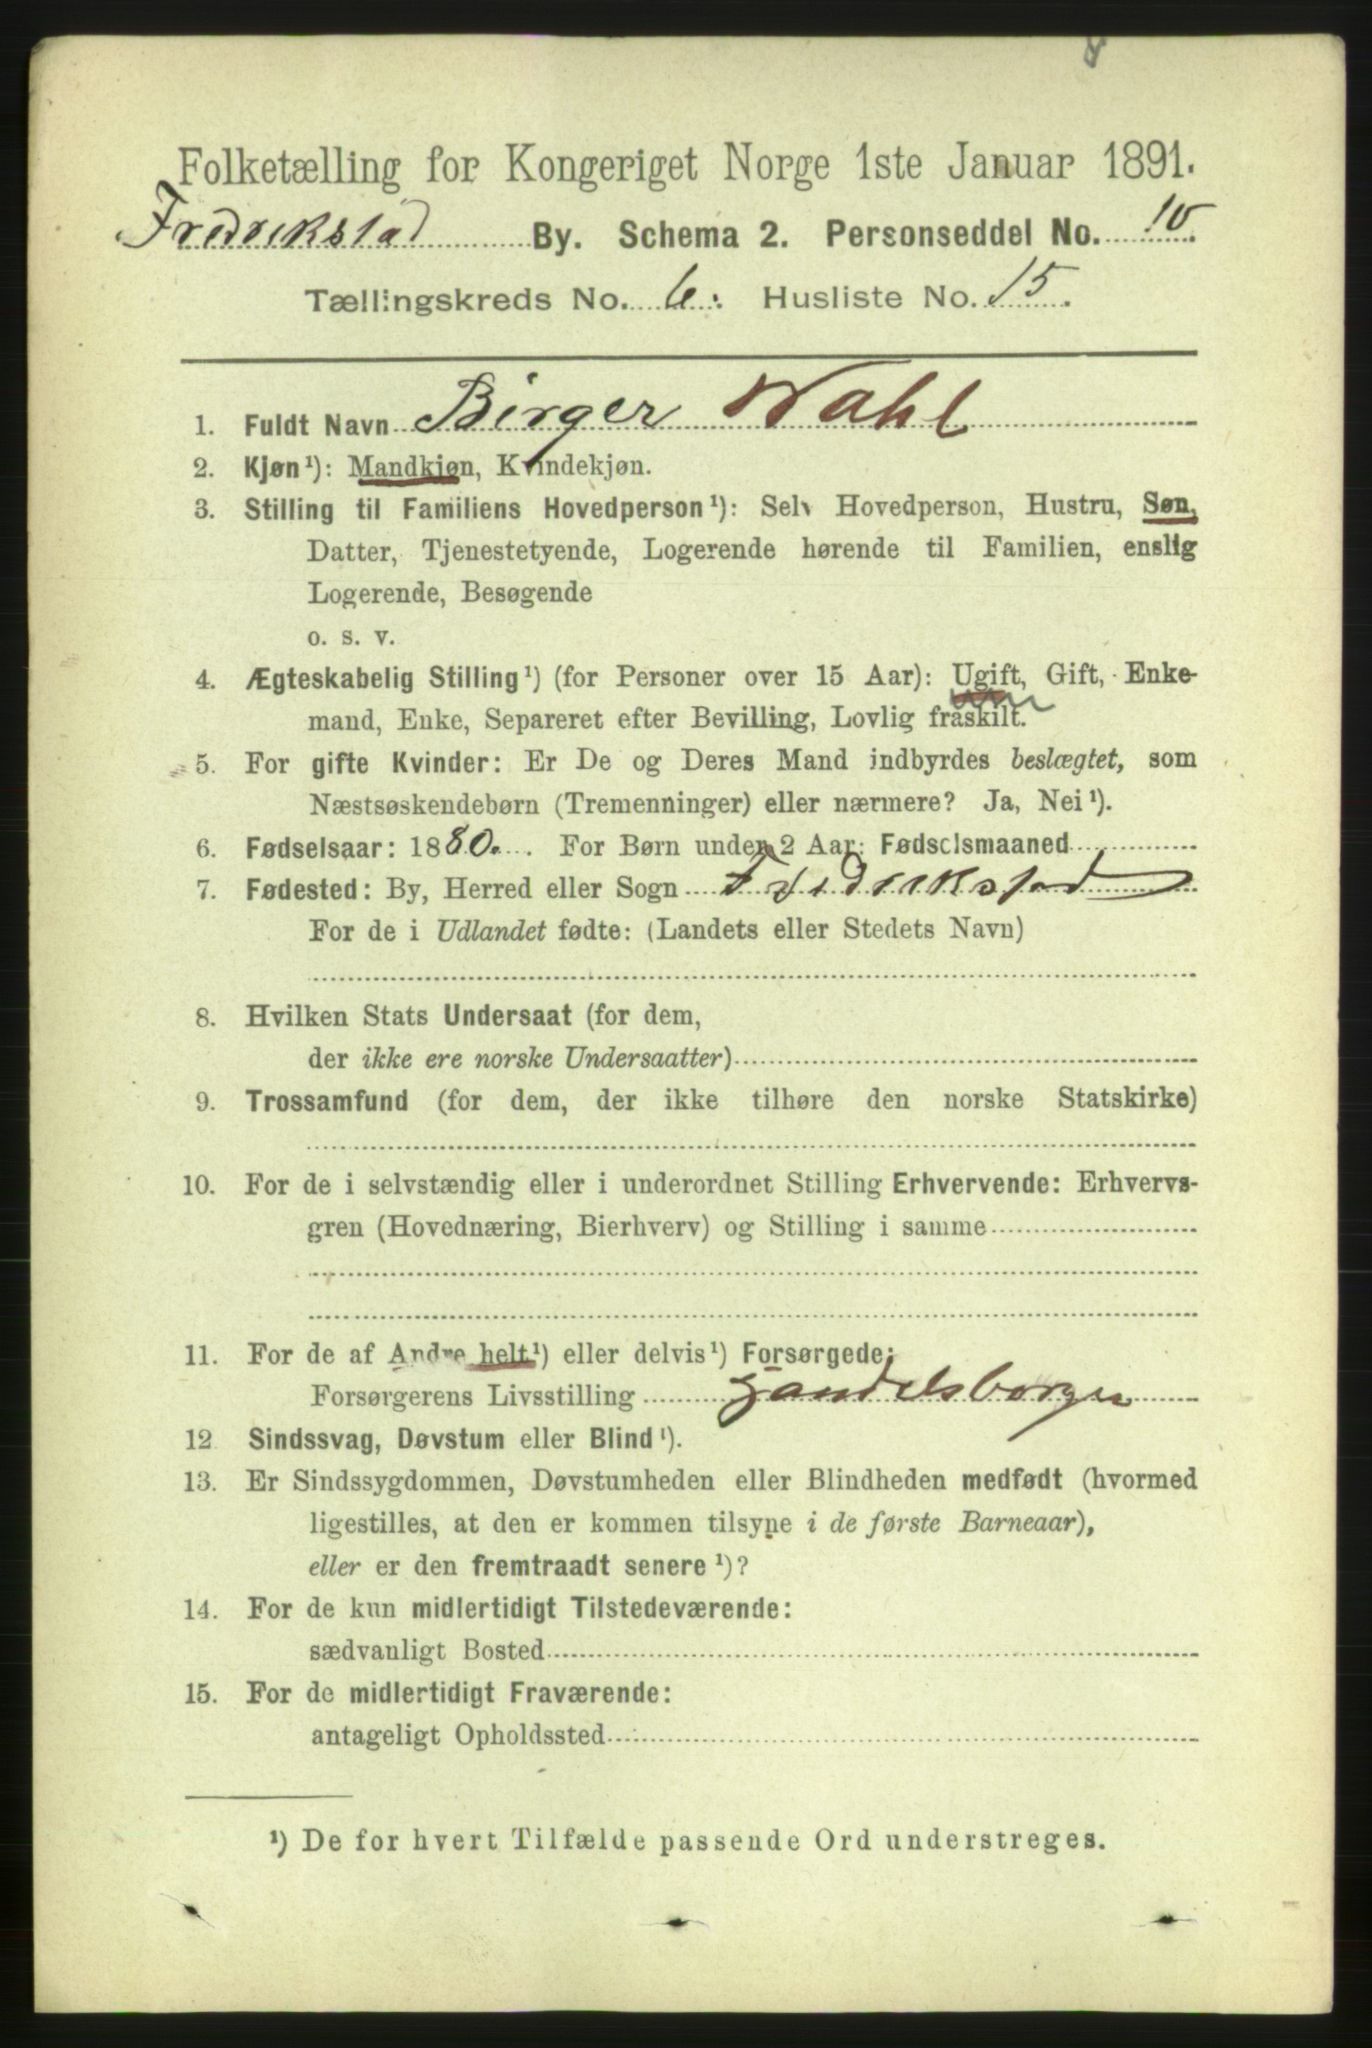 8
Folketælling for Kongeriget Norge 1ste Januar 1891.
Fredrikstad By. Schema 2. Personseddel No. 10.
Tællingskreds No. 6. Husliste No. 15.
1. Fuldt Navn Birger Wahl
2. Kjøn¹): Mandkjøn, Kvindekjøn.
3. Stilling til Familiens Hovedperson¹): Selv Hovedperson, Hustru, Søn,
Datter, Tjenestetyende, Logerende hørende til Familien, enslig
Logerende, Besøgende
o. s. v.
4. Ægteskabelig Stilling¹) (for Personer over 15 Aar): Ugift, Gift, Enke-
mand, Enke, Separeret efter Bevilling, Lovlig fraskilt.
5. For gifte Kvinder: Er De og Deres Mand indbyrdes beslægtet, som
Næstsøskendebørn (Tremenninger) eller nærmere? Ja, Nei¹).
6. Fødselsaar: 1880. For Børn under 2 Aar: Fødselsmaaned
7. Fødested: By, Herred eller Sogn Fredrikstad
For de i Udlandet fødte: (Landets eller Stedets Navn)
8. Hvilken Stats Undersaat (for dem,
der ikke ere norske Undersaatter)
9. Trossamfund (for dem, der ikke tilhøre den norske Statskirke)
10. For de i selvstændig eller i underordnet Stilling Erhvervende: Erhvervs-
gren (Hovednæring, Bierhverv) og Stilling i samme
11. For de af Andre helt¹) eller delvis¹) Forsørgede:
Forsørgerens Livsstilling Handelsborger
12 Sindssvag, Døvstum eller Blind¹).
13. Er Sindssygdommen, Døvstumheden eller Blindheden medfødt (hvormed
ligestilles, at den er kommen tilsyne i de første Barneaar),
eller er den fremtraadt senere¹)?
14. For de kun midlertidigt Tilstedeværende:
sædvanligt Bosted
15. For de midlertidigt Fraværende:
antageligt Opholdssted
¹) De for hvert Tilfælde passende Ord understreges.